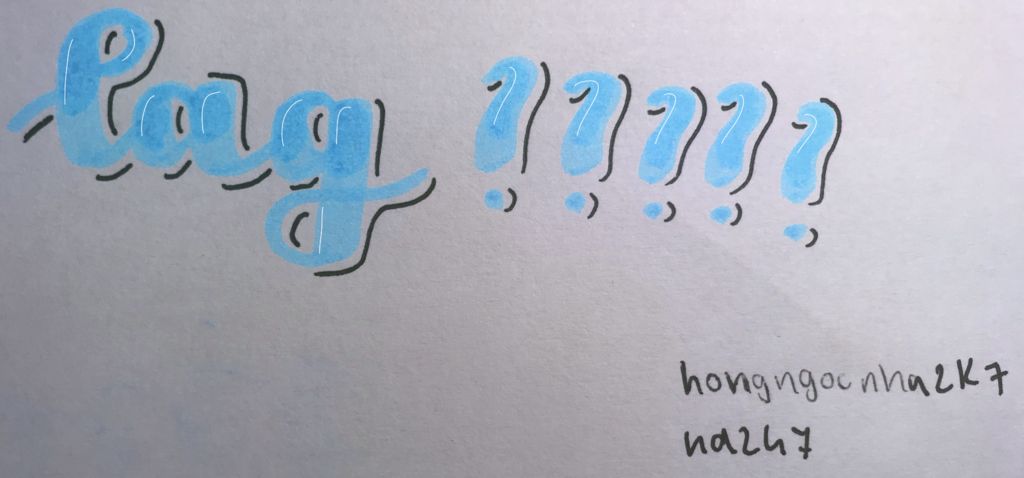 lag ?????
hongngocnha2K7
na2h7